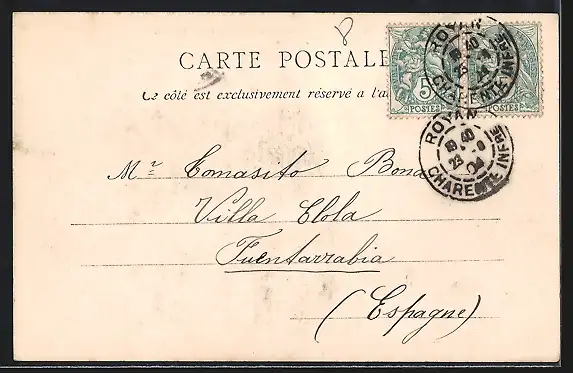 CARTE POSTALE
Ce côté est exclusivement réservé a l'a
5
POSTES
POSTES
ROYAN
CHARENTE INFRE
ROYAN
18 40
23 -8
04
CHARENTE INFRE
Mr Tomasito Bona
Villa Lola
Fuentarrabia
(Espagne)